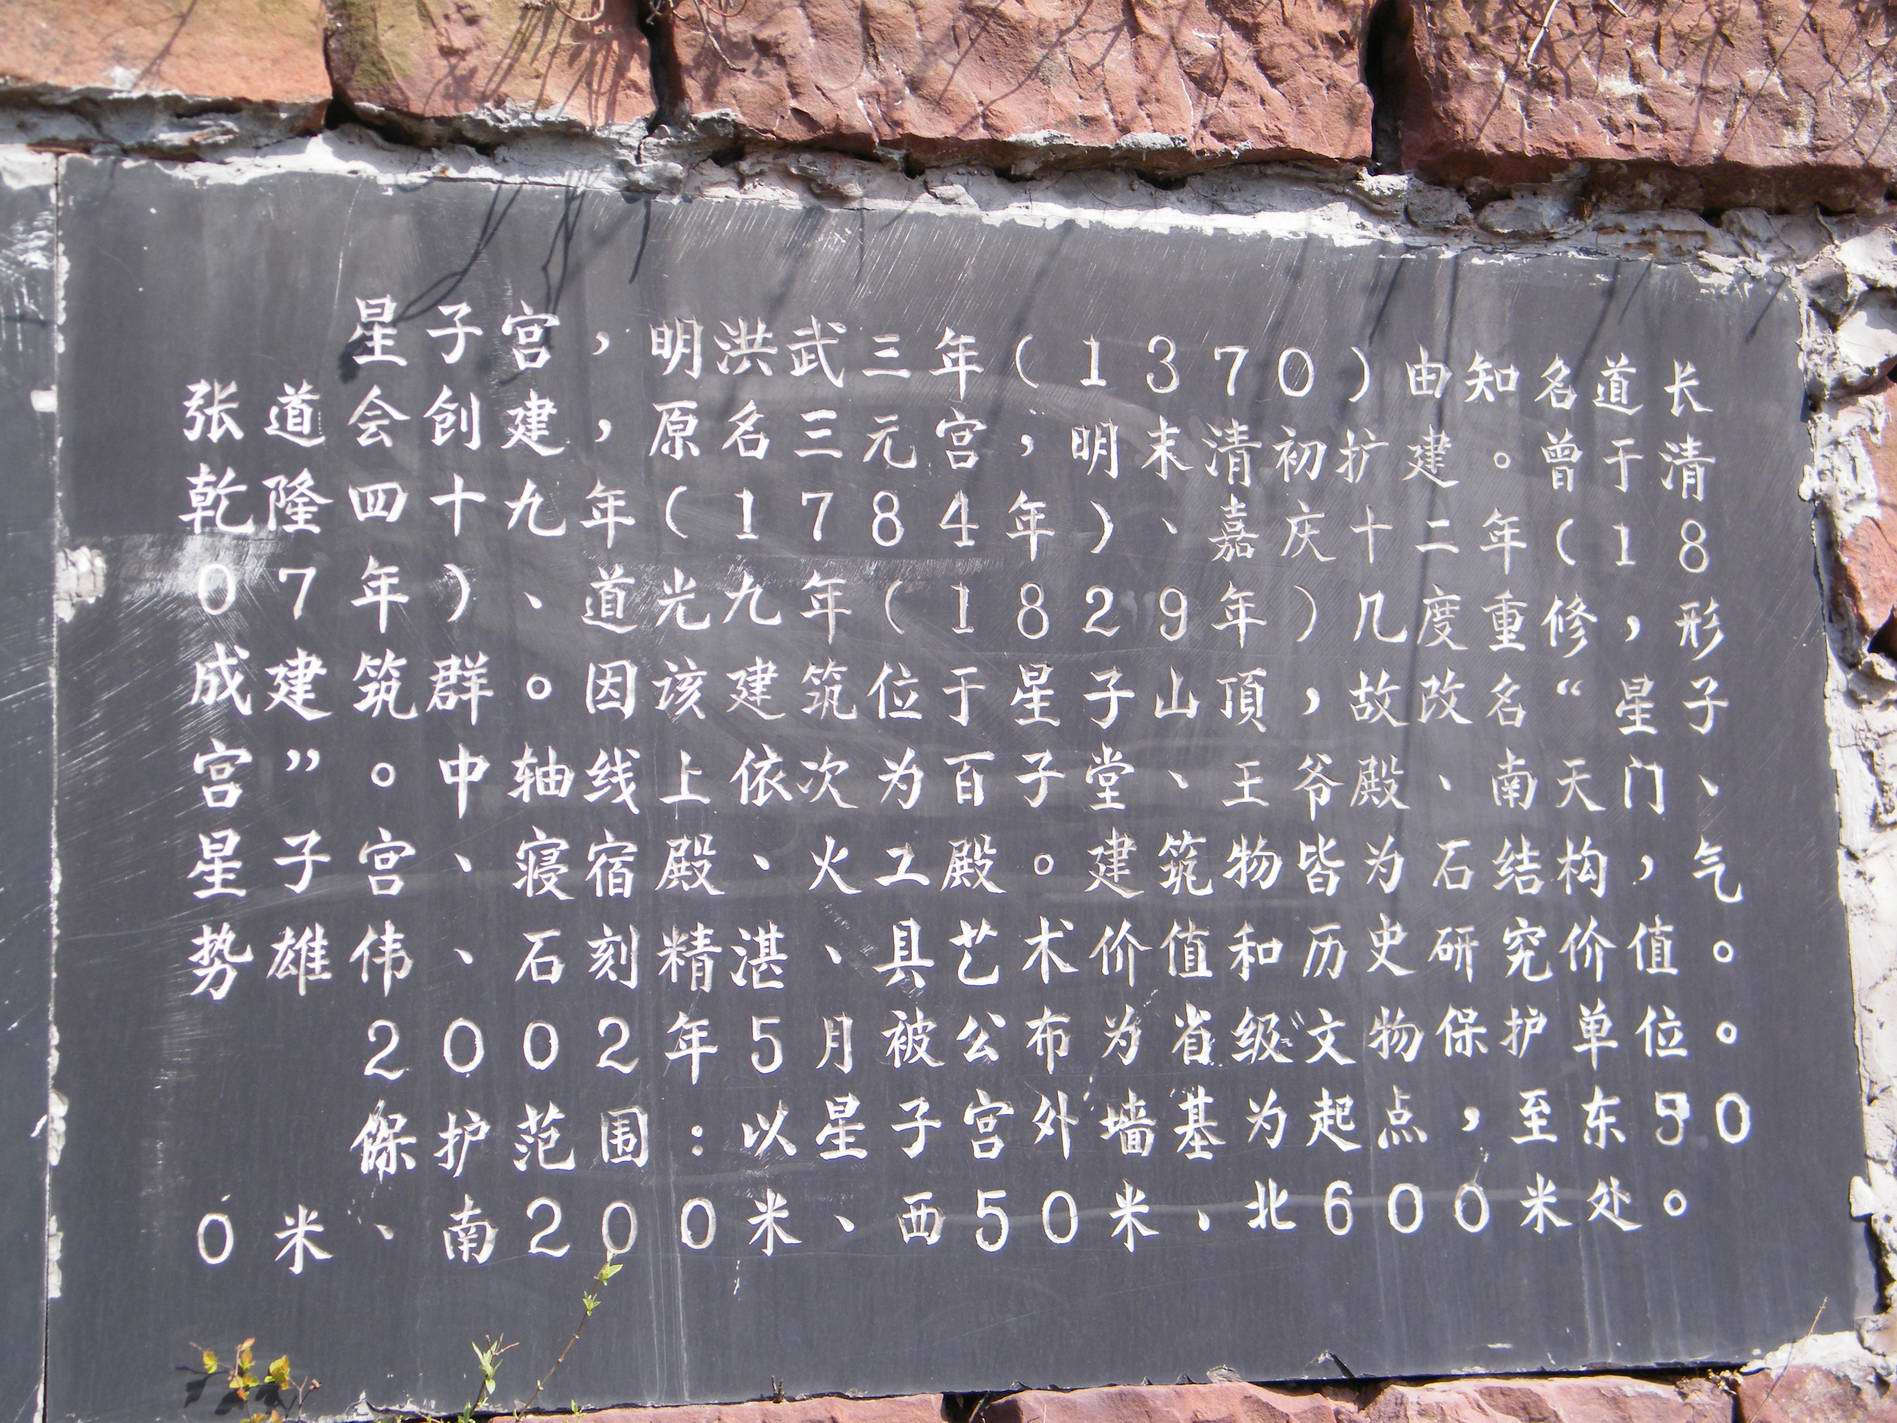 星子宫，明洪武三年(1370)由知名道长
张道会创建，原名三元宫，明末清初扩建。曾于清
乾隆四十九年(1784年)、嘉庆十二年(18
07年)、道光九年(1829年)几度重修，形
成建筑群。因该建筑位于星子山頂，故改名“星子
宫”。中轴线上依次为百子堂、王爷殿、南天门、
星子宫、寝宿殿、火工殿。建筑物皆为石结构，气
势雄伟、石刻精湛、具艺术价值和历史研究价值。
2002年5月被公布为省级文物保护单位。
保护范围：以星子宫外墙基为起点，至东50
0米、南200米、西50米、北600米处。